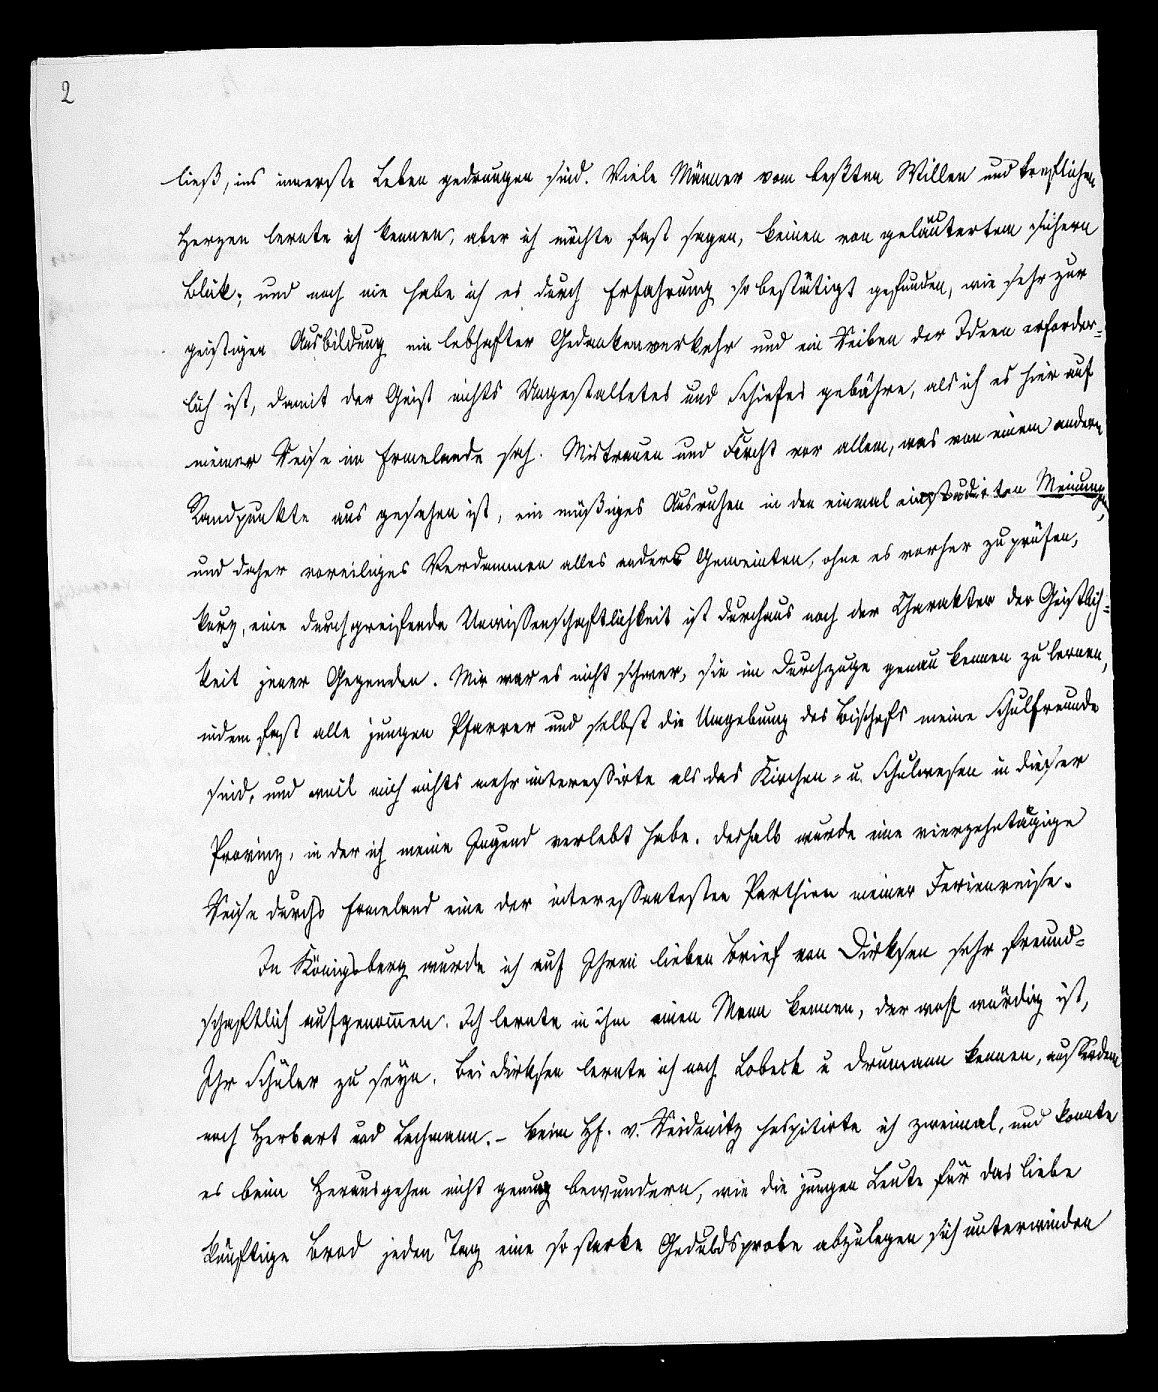 2
ließ, ins innerste Leben gedrungen sind. Viele Männer vom beßten Willen und trefflichen
Herzen lernte ich kennen, aber ich möchte fast sagen, keinen von geläutertem sichern
Blick; und noch nie habe ich es durch Erfahrung so bestätigt gefunden, wie sehr zur
geistigen Ausbildung ein lebhafter Gedankenverkehr und ein Reiben der Ideen erforder-
lich ist, damit der Geist nichts Ungestaltetes und Schiefes gebähre, als ich es hier auf
meiner Reise im Ermelande sah. Mistrauen und Furcht vor allem, was von einem andern
Standpunkte aus gesehen ist, ein müßiges Ausruhen in den einmal einstudirten Meinungen,
und daher voreiliges Verdammen alles anders Gemeinten, ohne es vorher zu prüfen,
kurz, eine durchgreifende Unwissenschaftlichkeit ist durchaus noch der Charakter der Geistlich-
keit jener Gegenden. Mir war es nicht schwer, sie im Durchzuge genau kennen zu lernen,
indem fast alle jungen Pfarrer und selbst die Umgebung des Bischofs meine Schulfreunde
sind, und weil mich nichts mehr interessirte als das Kirchen- u. Schulwesen in dieser
Provinz, in der ich meine Jugend verlebt habe. deshalb wurde eine vierzehntägige
Reise durchs Ermeland eine der interessantesten Parthien meiner Ferienreise.
In Königsberg wurde ich auf Ihren lieben Brief von Dirksen sehr freund-
schaftlich aufgenommen. Ich lernte in ihm einen Mann kennen, der wohl würdig ist,
Ihr Schüler zu seyn. Bei Dirksen lernte ich noch Lobeck u Drumann kennen, ausserdem
noch Herbart und Lachmann. - Beim Hf. v. Reidenitz hospitirte ich zweimal, und konnte
es beim Herausgehen nicht genug bewundern, wie die jungen Leute für das liebe
künftige Brod jeden Tag eine so starke Geduldsprobe abzulegen sich unterwinden